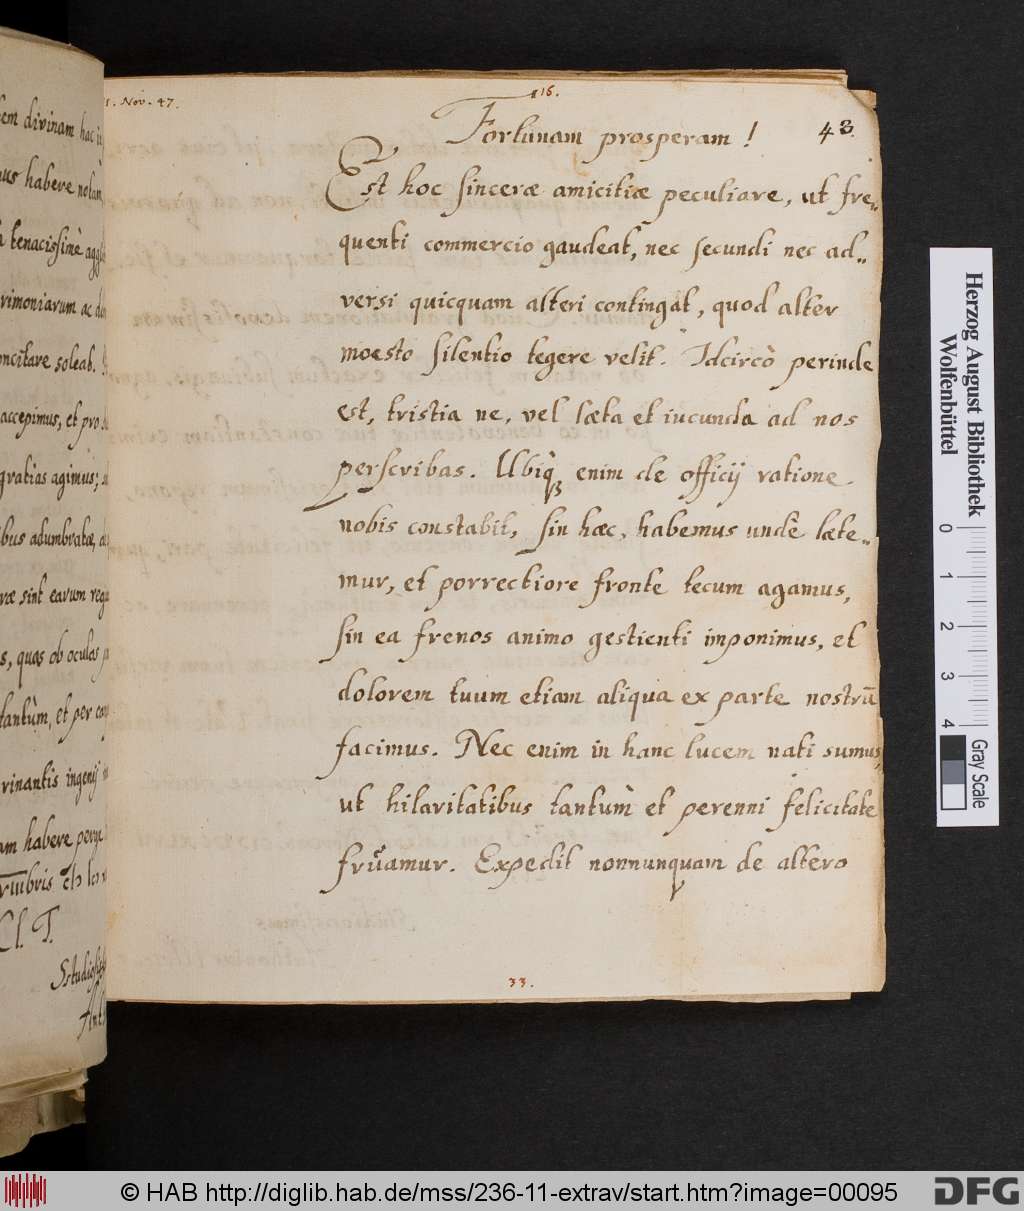 em divinam hac
us habere notam
tenacissimè aggl
rimoniarum ac
oncitare soleat.
accepimus, et pro
gratias agimus;
bus adumbratæ,
ræ sint earum reg
s, quas ob oculos
tantùm, et per
rinantis ingenij
am habere
Cl. T.
1. Nov. 47.
16.
43.
Fortunam prosperam!
Est hoc sinceræ amicitiæ peculiare, ut fre„
quenti commercio gaudeat, nec secundi nec ad„
versi quicquam alteri contingat, quod alter
moesto silentio tegere velit. Idcircò perinde
est, tristia ne, vel læta et iucunda ad nos
perscribas. Ubiq₃ enim de officij ratione
nobis constabit, sin hæc, habemus undè læte„
mur, et porrectiore fronte tecum agamus,
sin ea frenos animo gestienti imponimus, et
dolorem tuum etiam aliqua ex parte nostrū
facimus. Nec enim in hanc lucem nati sumus,
ut hilaritatibus tantùm et perenni felicitate
fruamur. Expedit nonnunquam de altero
33.
Herzog August Bibliothek
Wolfenbüttel
0 1 2 3 4
Gray Scale
© HAB http://diglib.hab.de/mss/236-11-extrav/start.htm?image=00095
DFG